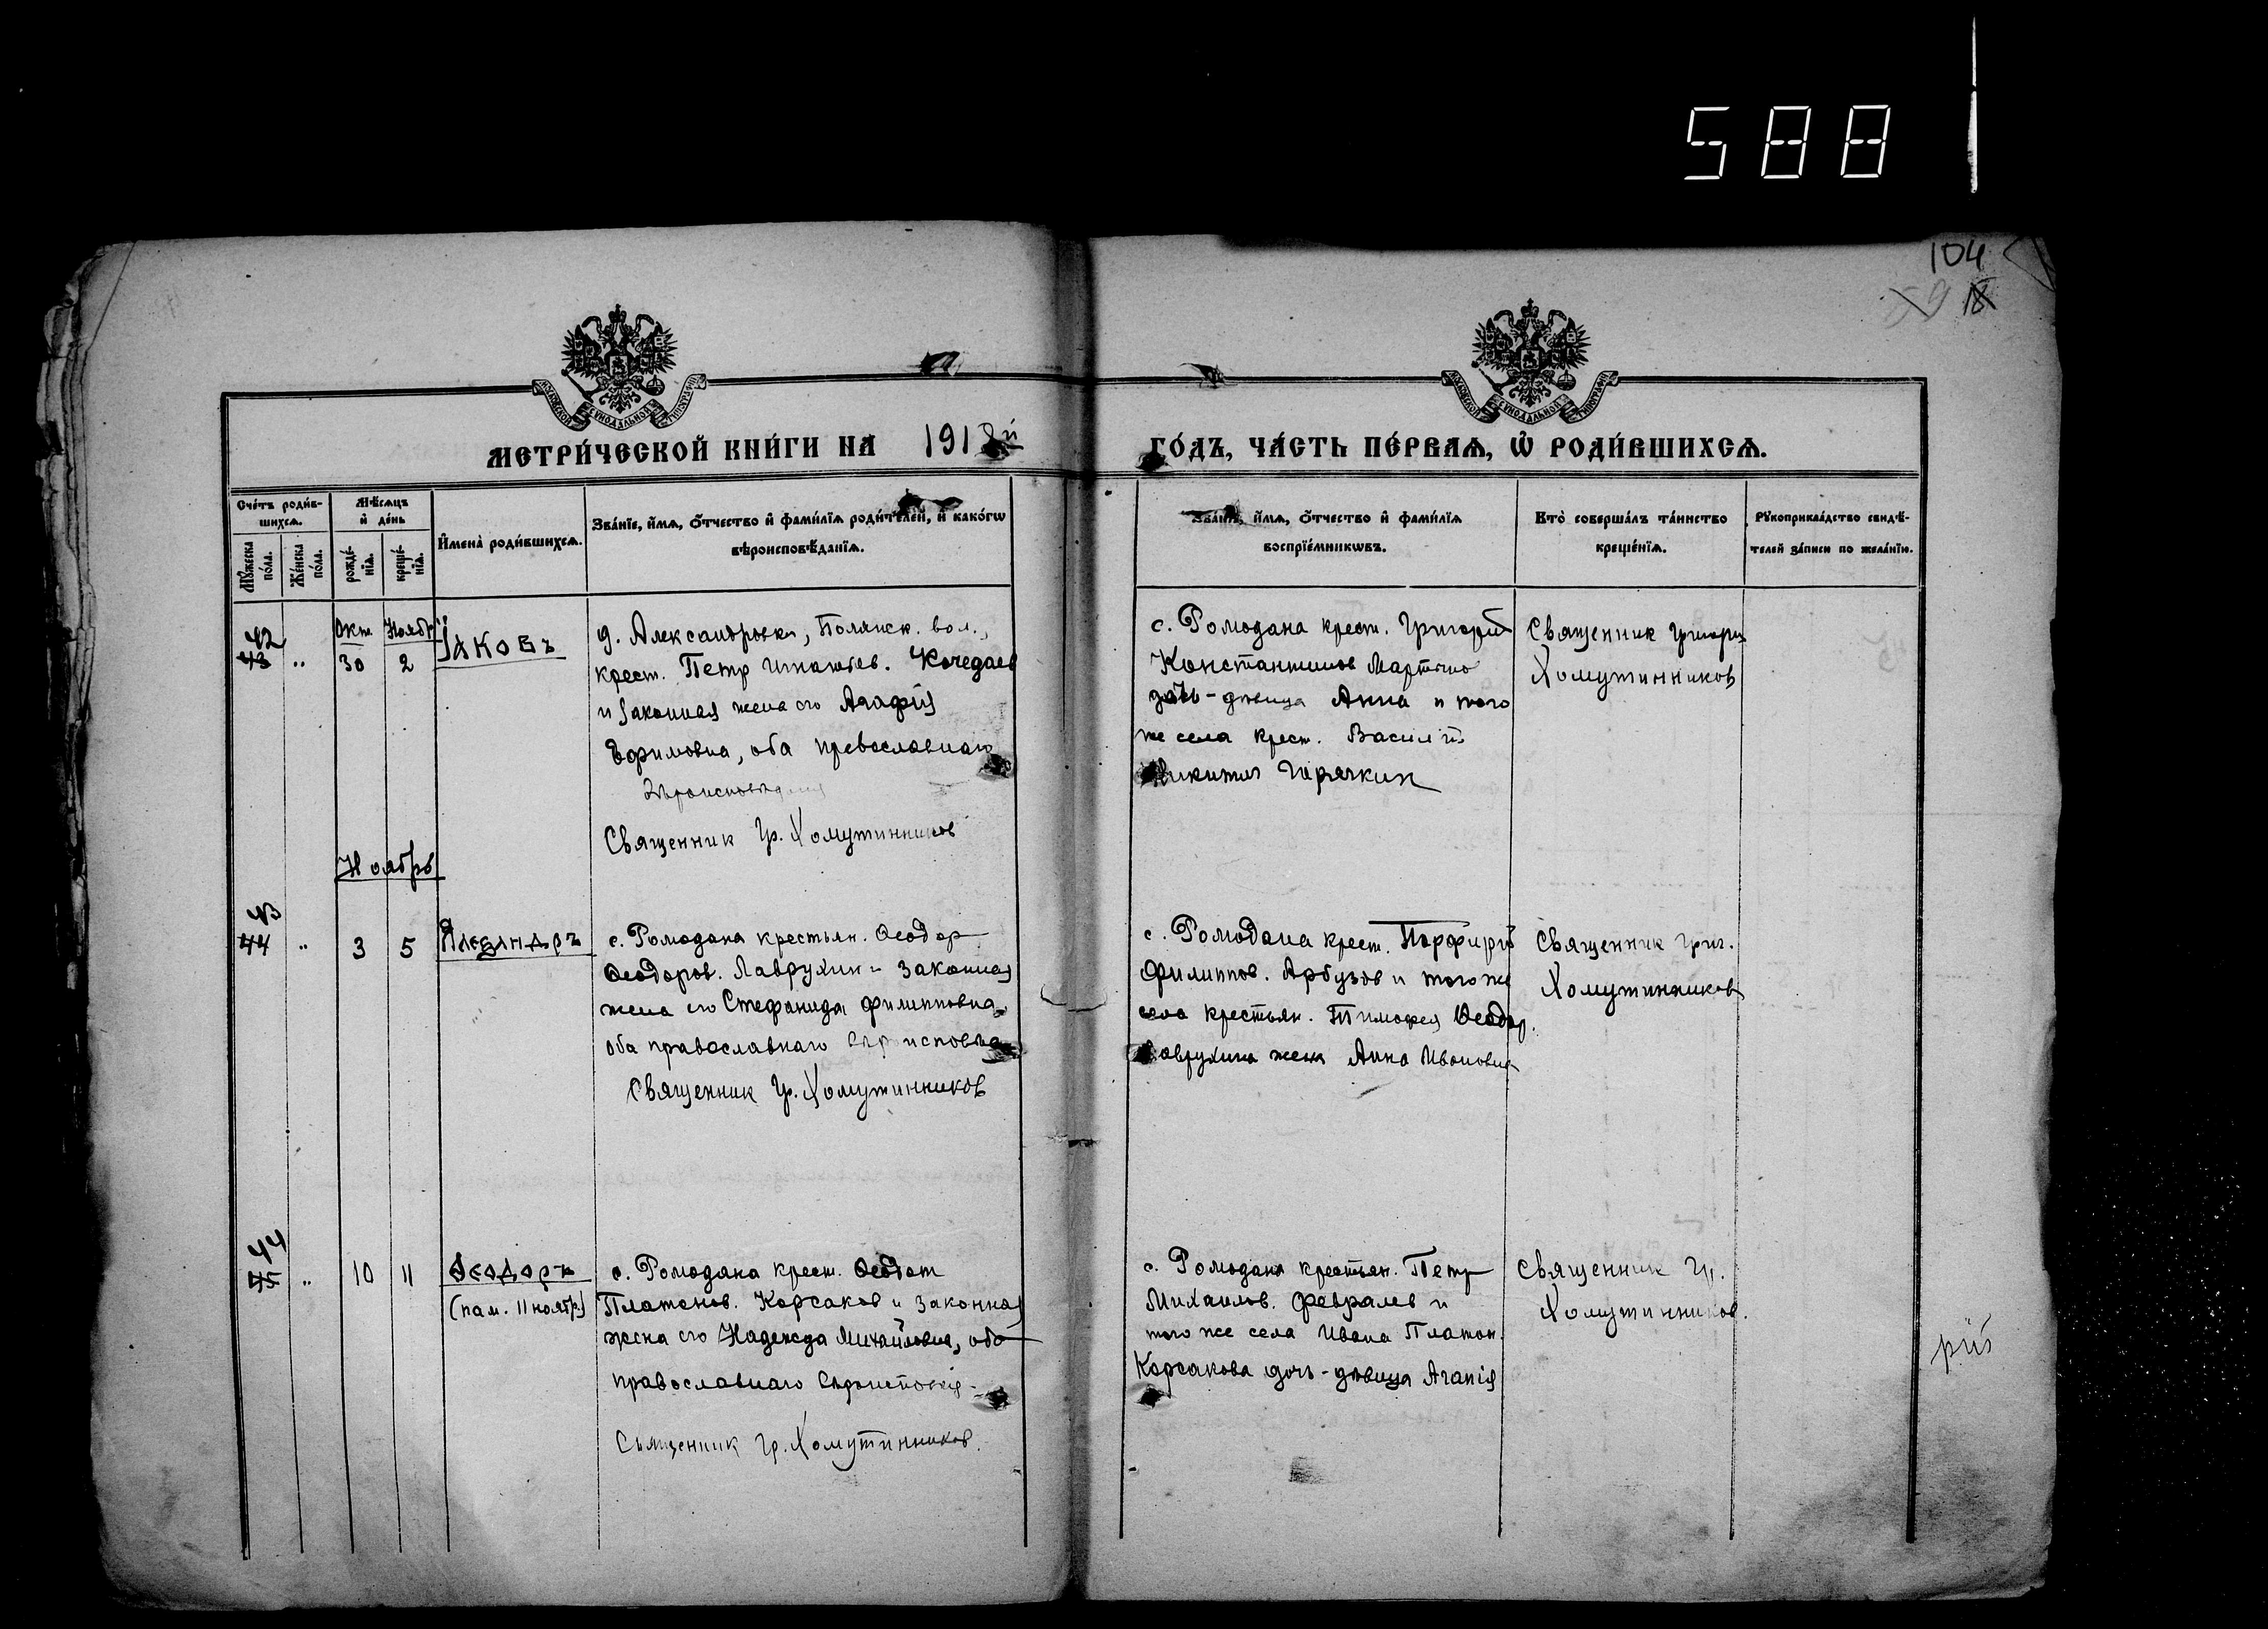 5881
104
МЕТРИ́ЧЕСКОЙ КНИ́ГИ НА 1918й ГО́ДЪ, ЧА́СТЬ ПЕ́РВАѦ, Ѽ РОДИ́ВШИХСѦ.
Сче́тъ роди́в-
шихсѧ.
Мꙋ́жеска по́ла.
Же́нска по́ла.
Мѣ́сѧцъ
и҆ де́нь
рожде́-
нїѧ.
креще́-
нїѧ.
И҆мена̀ роди́вшихсѧ.
Зва́нїе, и҆́мѧ, ѻ҆́тчество и҆ фами́лїѧ роди́телей, и҆ како́гѡ
вѣроисповѣ́данїѧ.
Зва́нїе, и҆́мѧ, ѻ҆́тчество и҆ фами́лїѧ
воспрїе́мникѡвъ.
Кто̀ соверша́лъ та́инство
креще́нїѧ.
Рꙋкоприкла́дство свидѣ́-
телей за́писи по жела́нїю.
42
43 " Окт. 30 Ноябр. 2 Іаковъ
д. Александровки, Полянск. вол.,
крест. Петр Игнатьев. Кочедаев
и законная жена его Агафія
Ефимовна, оба православнаго
вѣроисповѣданія
Священник Гр. Хомутинников
с. Ромодана крест. Григорій
Константинов
дочь-дѣвица Анна и того
же села крест. Василій
Никитин Горячкин
Священник Григорій
Хомутинников
Ноябрь
43
44 " 3 5 Алеѯандръ
с. Ромодана крестьян. Ѳеодор
Ѳеодоров. Лаврухин и законная
жена его Стефанида Филипповна,
оба православнаго вѣроисповѣд
Священник Гр. Хомутинников
с. Ромодана крест. Порфирій
Филиппов. Арбузов и того же
села крестьян. Тимофея Ѳеодор.
Лаврухина жена Анна Ивановна
Священник Григ.
Хомутинников
44
45 " 10 11 Ѳеодоръ
(пам. 11 ноябр.)
с. Ромодана крест. Ѳеодот
Платонов. Корсаков и законная
жена его Надежда Михайловна, оба
православнаго
Священник Гр. Хомутинников.
с. Ромодана крестьян. Петр
Михаилов. Февралев и
того же села Ивана Платон.
Корсакова дочь-дѣвица Агапія
Священник Гр.
Хомутинников.
рій